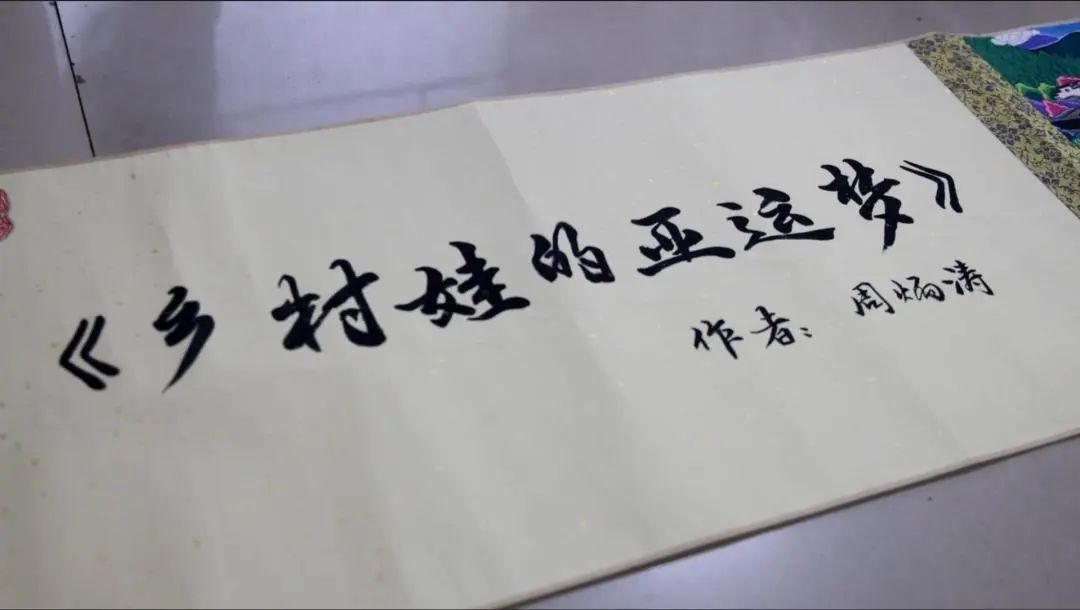 《乡村娃的亚运梦》
作者：周炳涛